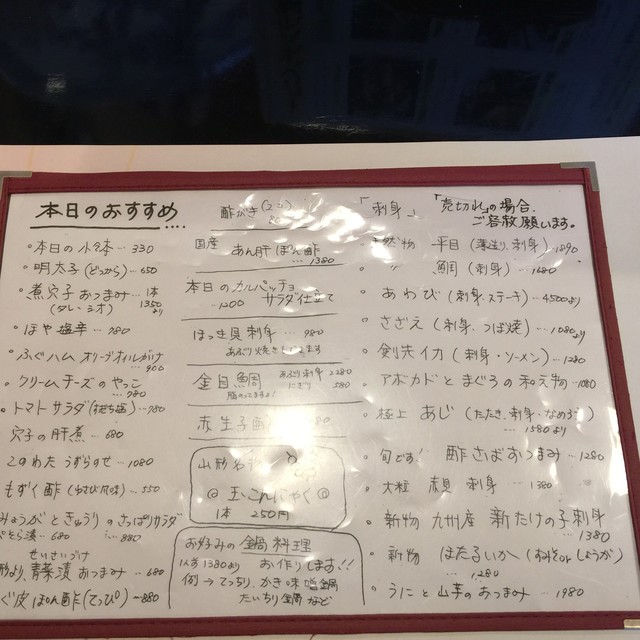 本日のおすすめ
本日の小鉢 … 330
明太子(どっから) … 650
煮穴子 おつまみ … 1本
(タレ・シオ) 1350より
ほや塩辛 … 780
ふぐハム オリーブオイルがけ
… 900
クリームチーズのやっこ
… 780
トマトサラダ … 780
穴子の肝煮 … 680
このわた うずらのせ … 1080
もずく酢(わさび風味) … 550
みょうがときゅうりのさっぱりサラダ
… 880
青菜漬 おつまみ … 680
せいさいづけ
ぐ皮ぽん酢(てっぴ) … 880
酢がき
国産 あん肝 ぽん酢
… 1380
本日のカルパッチョ
… 1200 サラダ仕立て
ほっき貝刺身 … 980
あぶり焼き
金目鯛 あぶり刺身 2280
にぎり 580
脂のってますよ!
赤生子酢
山形名物
玉こんにゃく
1本 250円
お好みの鍋料理
1人前1380より お作りします!!
例→てっちり、かき味噌鍋
たいちり鍋 など
「刺身」
「売切れ」の場合、
ご容赦願います。
天然物 平目(薄造り、刺身) 1890
〃 鯛(刺身) … 1680
あわび(刺身・ステーキ) … 4500より
さざえ(刺身、つぼ焼) … 1080より
剣先イカ(刺身・ソーメン) … 1280
アボカドとまぐろの和え物 … 1080
極上 あじ(たたき、刺身・なめろう)
… 1580より
旬です! 酢さばおつまみ … 1280
大粒 赤貝 刺身 … 1380
新物 九州産 新たけの子刺身
… 1380
新物 ほたるいか(酢みそorしょうが)
… 1280
うにと山芋のおつまみ … 1980